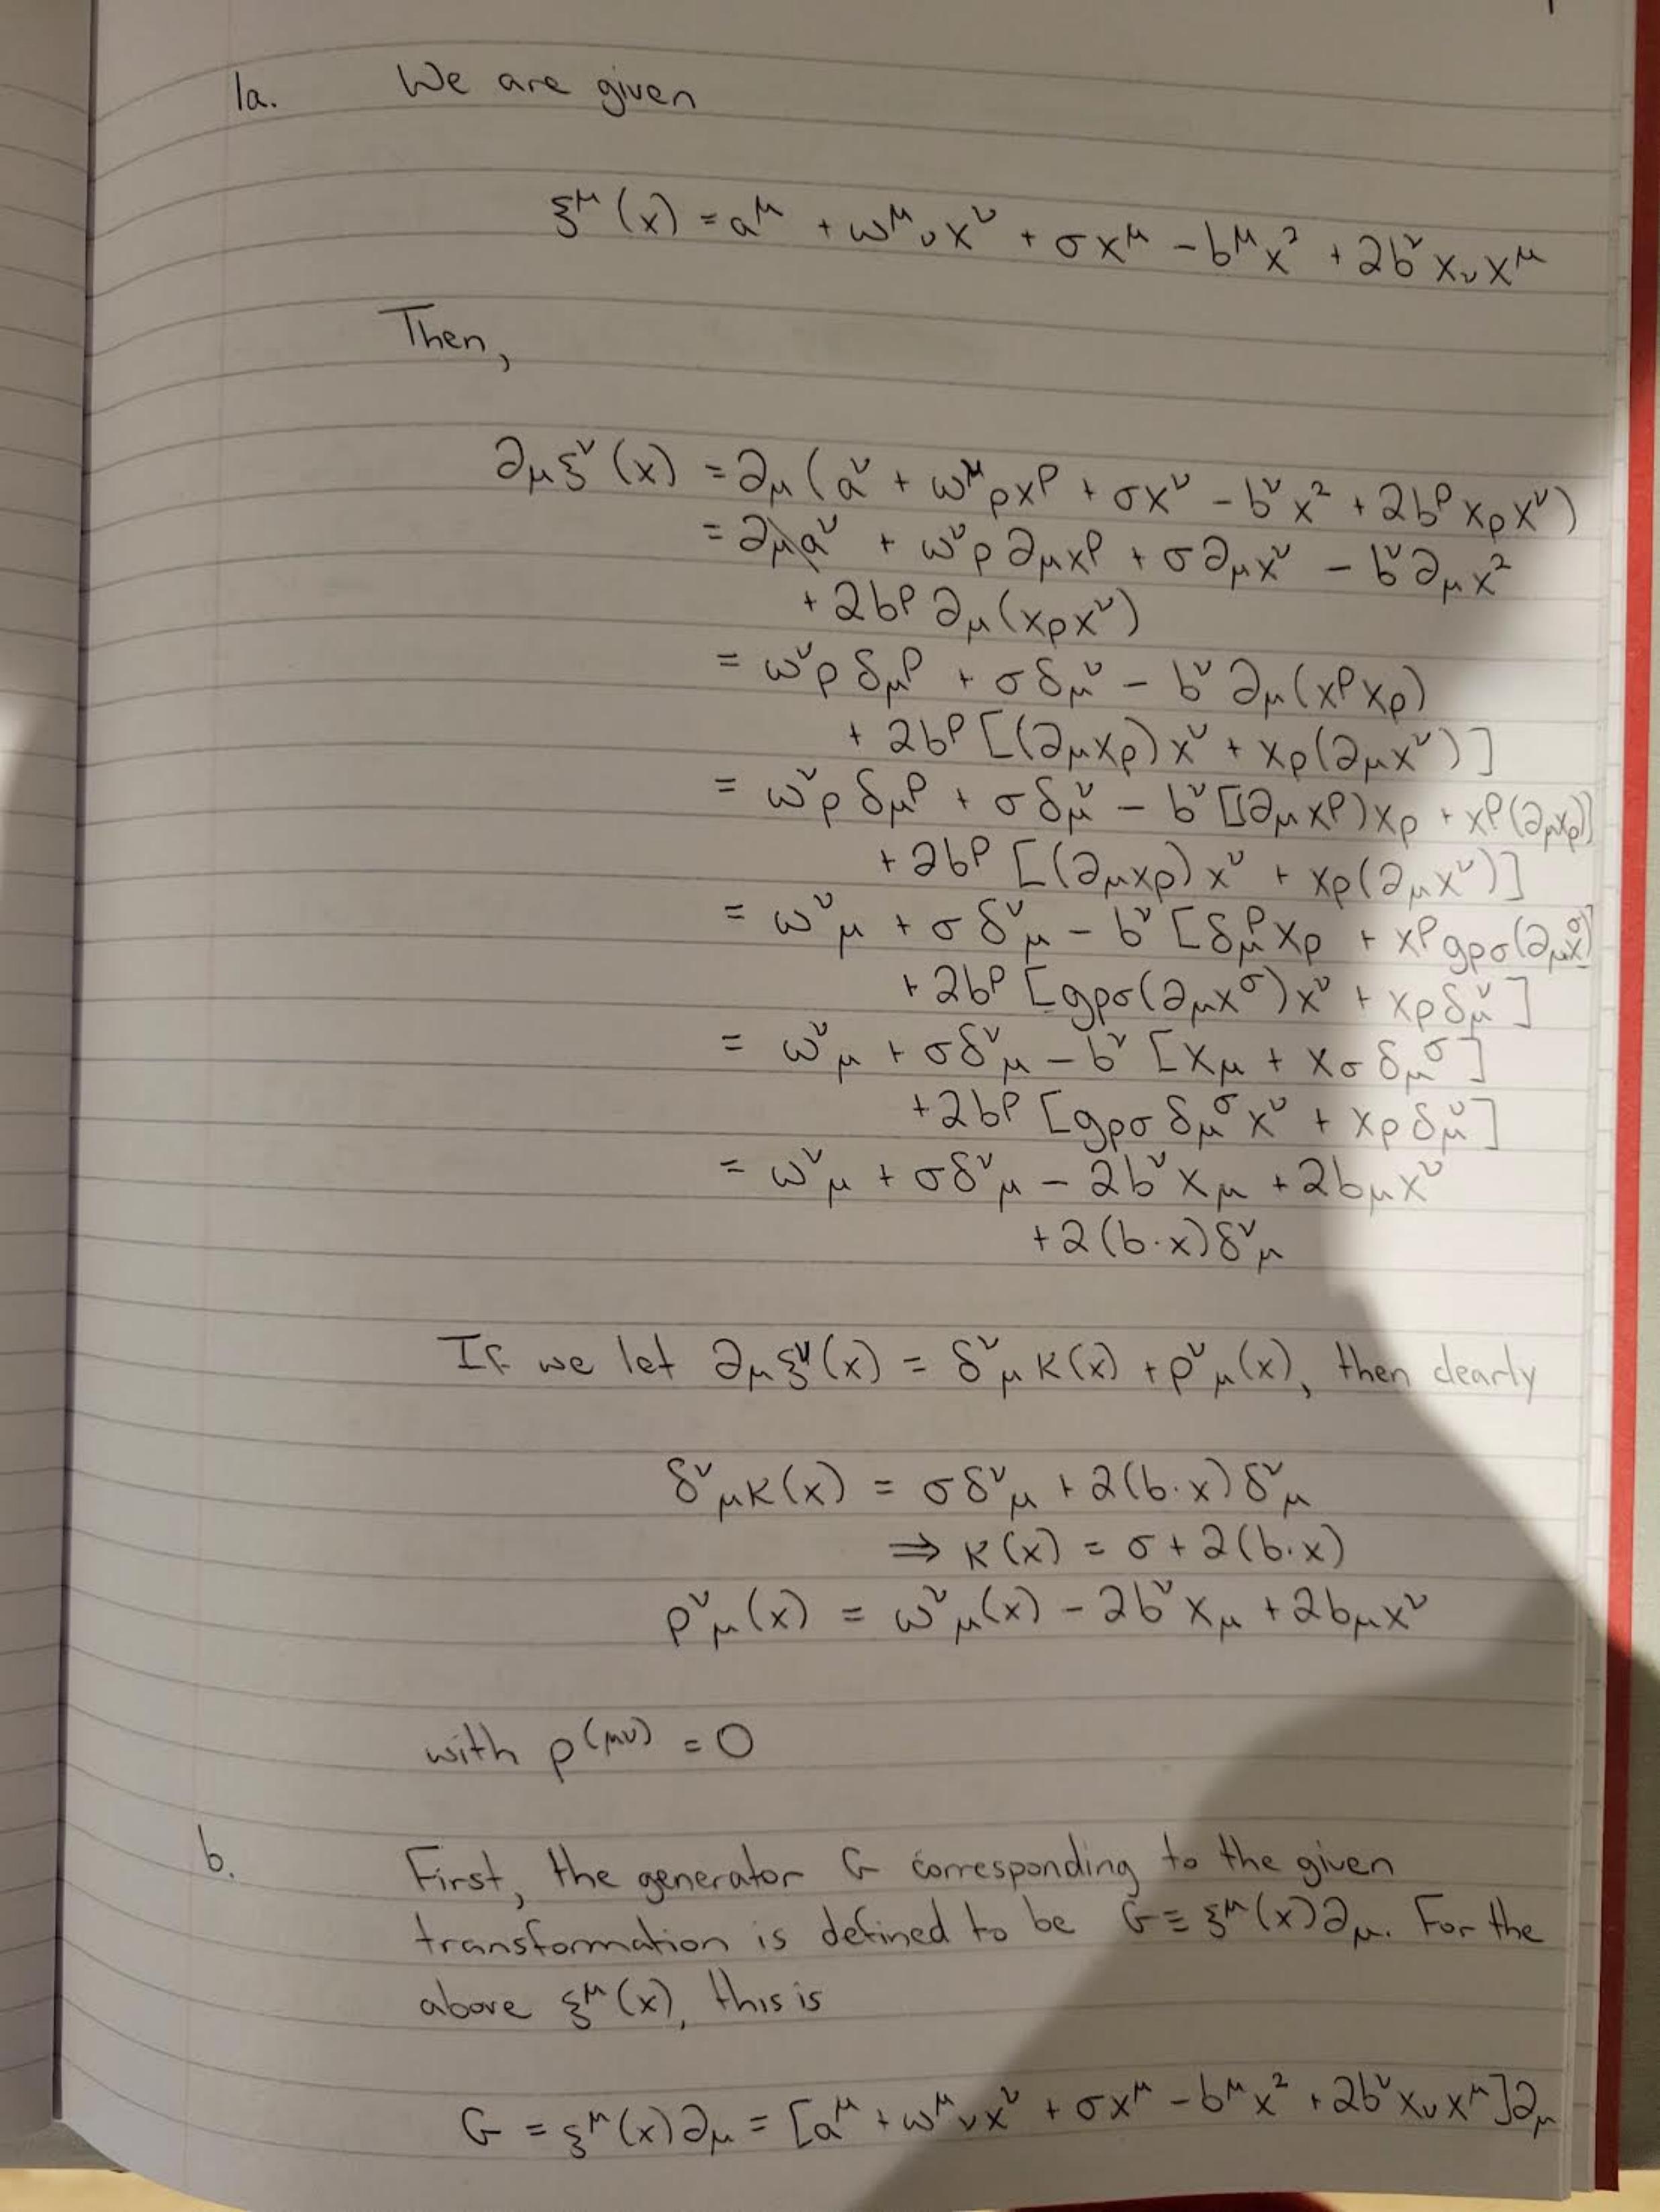 1a. We are given
ξ^μ(x) = a^μ + ω^μ_ν x^ν + σx^μ - b^μ x² + 2b^ν x_ν x^μ
Then,
∂_μ ξ^ν(x) = ∂_μ(a^ν + ω^μ_ρ x^ρ + σx^ν - b^ν x² + 2b^ρ x_ρ x^ν)
= ∂_μ a^ν + ω^ν_ρ ∂_μ x^ρ + σ∂_μ x^ν - b^ν ∂_μ x²
+ 2b^ρ ∂_μ(x_ρ x^ν)
= ω^ν_ρ δ_μ^ρ + σδ_μ^ν - b^ν ∂_μ(x^ρ x_ρ)
+ 2b^ρ [(∂_μ x_ρ) x^ν + x_ρ(∂_μ x^ν)]
= ω^ν_ρ δ_μ^ρ + σδ_μ^ν - b^ν [(∂_μ x^ρ)x_ρ + x^ρ(∂_μ x_ρ)]
+ 2b^ρ [(∂_μ x_ρ) x^ν + x_ρ(∂_μ x^ν)]
= ω^ν_μ + σδ^ν_μ - b^ν [δ_μ^ρ x_ρ + x^ρ g_ρσ(∂_μ x^σ)]
+ 2b^ρ [g_ρσ(∂_μ x^σ)x^ν + x_ρ δ_μ^ν]
= ω^ν_μ + σδ^ν_μ - b^ν [x_μ + x_σ δ_μ^σ]
+ 2b^ρ [g_ρσ δ_μ^σ x^ν + x_ρ δ_μ^ν]
= ω^ν_μ + σδ^ν_μ - 2b^ν x_μ + 2b_μ x^ν
+ 2(b·x)δ^ν_μ
If we let ∂_μ ξ^ν(x) = δ^ν_μ κ(x) + ρ^ν_μ(x), then clearly
δ^ν_μ κ(x) = σδ^ν_μ + 2(b·x)δ^ν_μ
⇒ κ(x) = σ + 2(b·x)
ρ^ν_μ(x) = ω^ν_μ(x) - 2b^ν x_μ + 2b_μ x^ν
with ρ^(μν) = 0
b. First, the generator G corresponding to the given
transformation is defined to be G ≡ ξ^μ(x)∂_μ. For the
above ξ^μ(x), this is
G = ξ^μ(x)∂_μ = [a^μ + ω^μ_ν x^ν + σx^μ - b^μ x² + 2b^ν x_ν x^μ]∂_μ